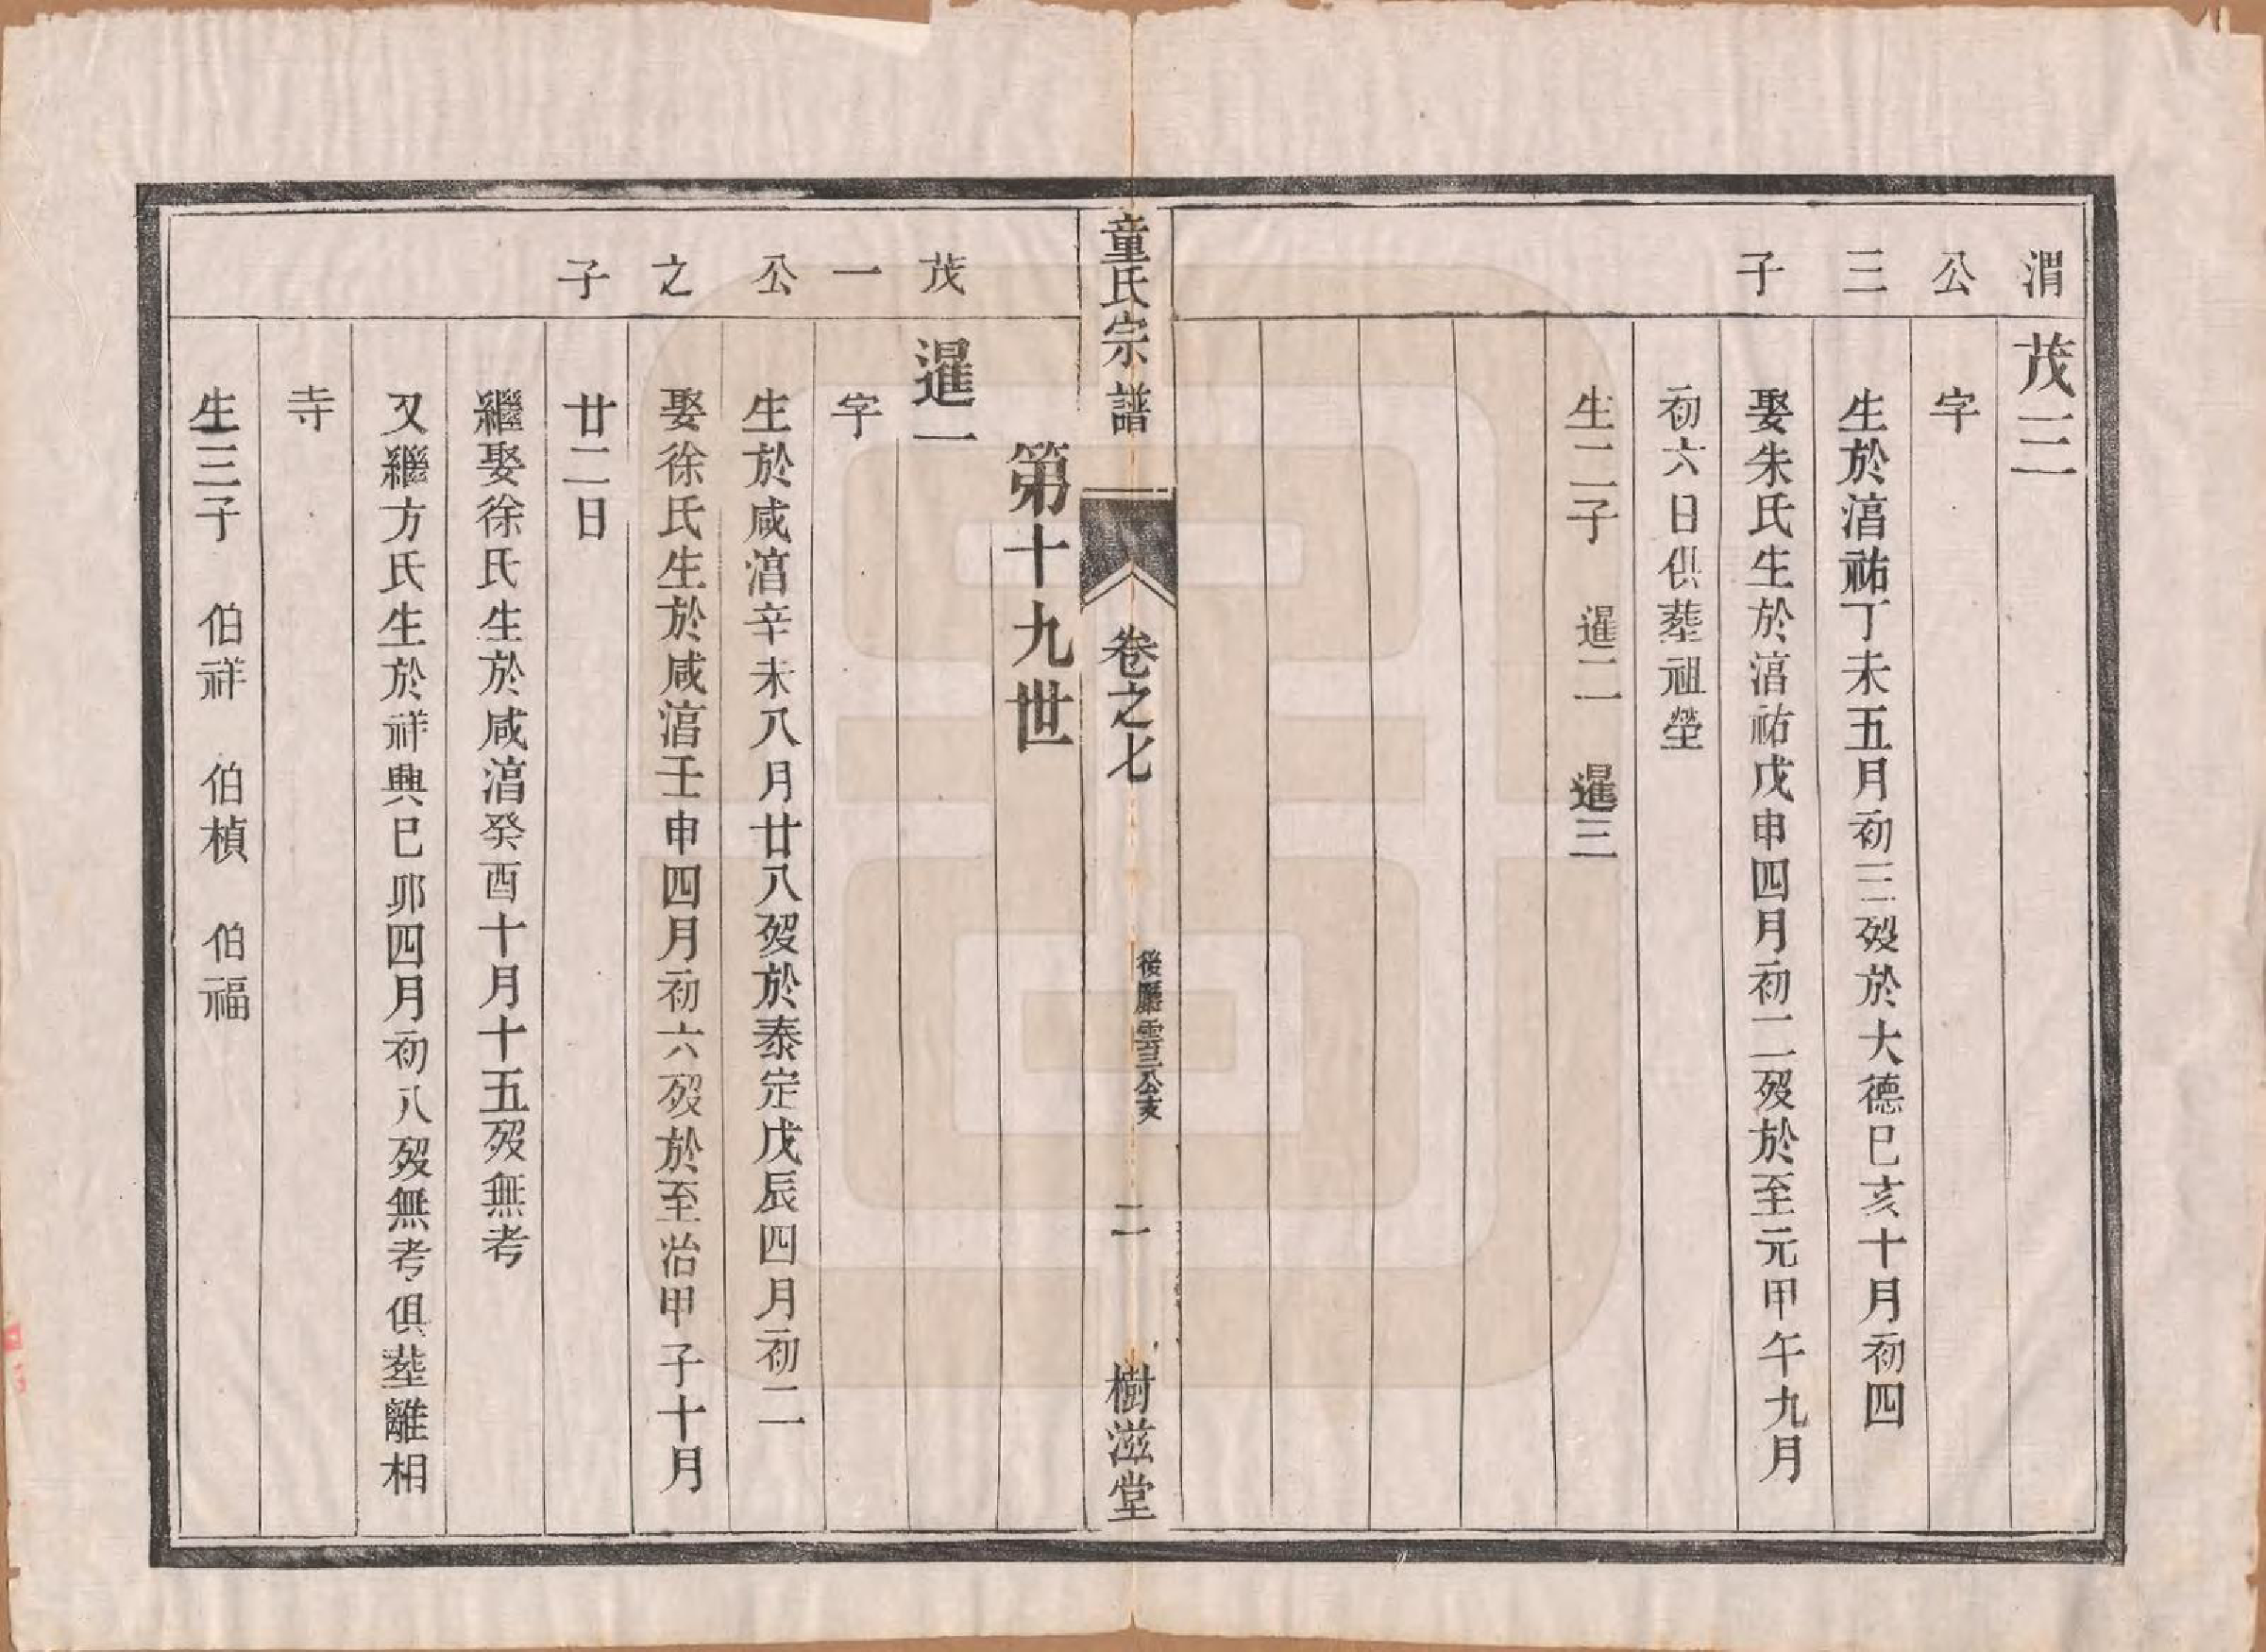 渭公三子
茂三
字
生於湻祐丁未五月初三歿於大德巳亥十月初四
娶朱氏生於湻祐戊申四月初二歿於至元甲午九月
初六日俱塟祖塋
生二子　暹二　暹三
童氏宗譜
卷之七
後廳雲三公支
二
樹滋堂
第十九世
茂一公之子
暹一
字
生於咸湻辛未八月廿八歿於泰定戊辰四月初二
娶徐氏生於咸湻壬申四月初六歿於至治甲子十月
廿二日
繼娶徐氏生於咸湻癸酉十月十五歿無考
又繼方氏生於祥興巳卯四月初八歿無考俱塟離相
寺
生三子　伯祥　伯楨　伯福